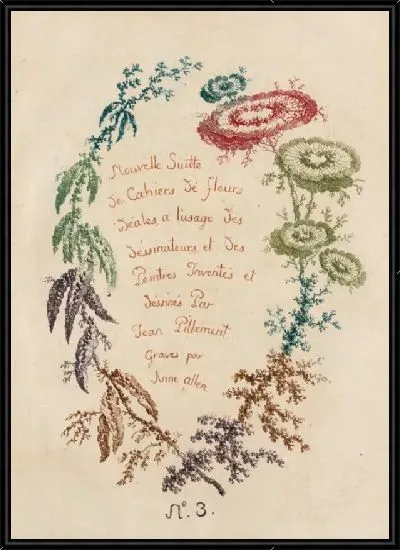 Nouvelle Suitte
de Cahiers de fleurs
idéales a l'usage des
dessinateurs et des
Peintres Inventés et
déssinés Par
Jean Pillement
Gravés par
Anne allen
N°. 3.